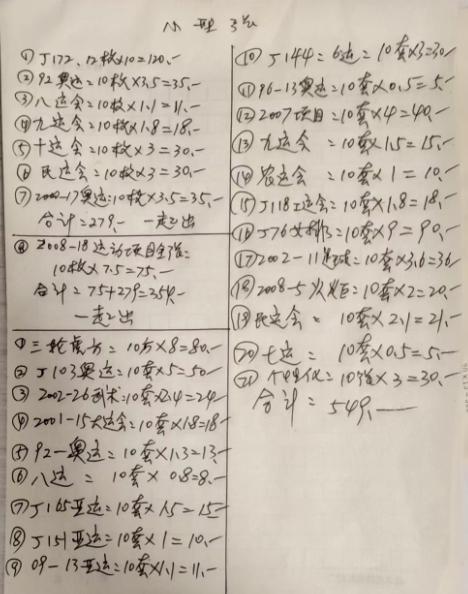 小型张
① J172, 12枚×10=120.-
② 92奥运=10枚×3.5=35.-
③ 八运会=10枚×1.1=11.-
④ 九运会=10枚×1.8=18.-
⑤ 十运会=10枚×3=30.-
⑥ 民运会=10枚×3=30.-
⑦ 2000-17奥运=10枚×3.5=35.-
合计=279.- 一走2出
⑧ 2008-18运动项目全张=
10枚×7.5=75.-
合计=75+279=354.-
一走2出
① 三轮 方=10方×8=80.-
② J103奥运=10套×5=50-
③ 2002-26武术=10套×2.4=24-
④ 2001-15大运会=10套×1.8=18-
⑤ 92-奥运=10套×1.3=13.-
⑥ 八运=10套×0.8=8.-
⑦ J165亚运=10套×1.5=15-
⑧ J151亚运=10套×1=10.-
⑨ 09-13亚运=10套×1.1=11.-
⑩ J144=6运=10套×3=30-
⑪ 96-13奥运=10套×0.5=5.-
⑫ 2007项目=10套×4=40.-
⑬ 九运会=10套×1.5=15.-
⑭ 农运会=10套×1=10.-
⑮ J118工运会=10套×1.8=18.-
⑯ J76女排3=10套×9=90.-
⑰ 2002-11 球=10套×3.6=36-
⑱ 2008-5火炬=10套×2=20.-
⑲ 民运会=10套×2.1=21.-
⑳ 七运=10套×0.5=5.-
㉑ 个性化=10张×3=30.-
合计=549.-